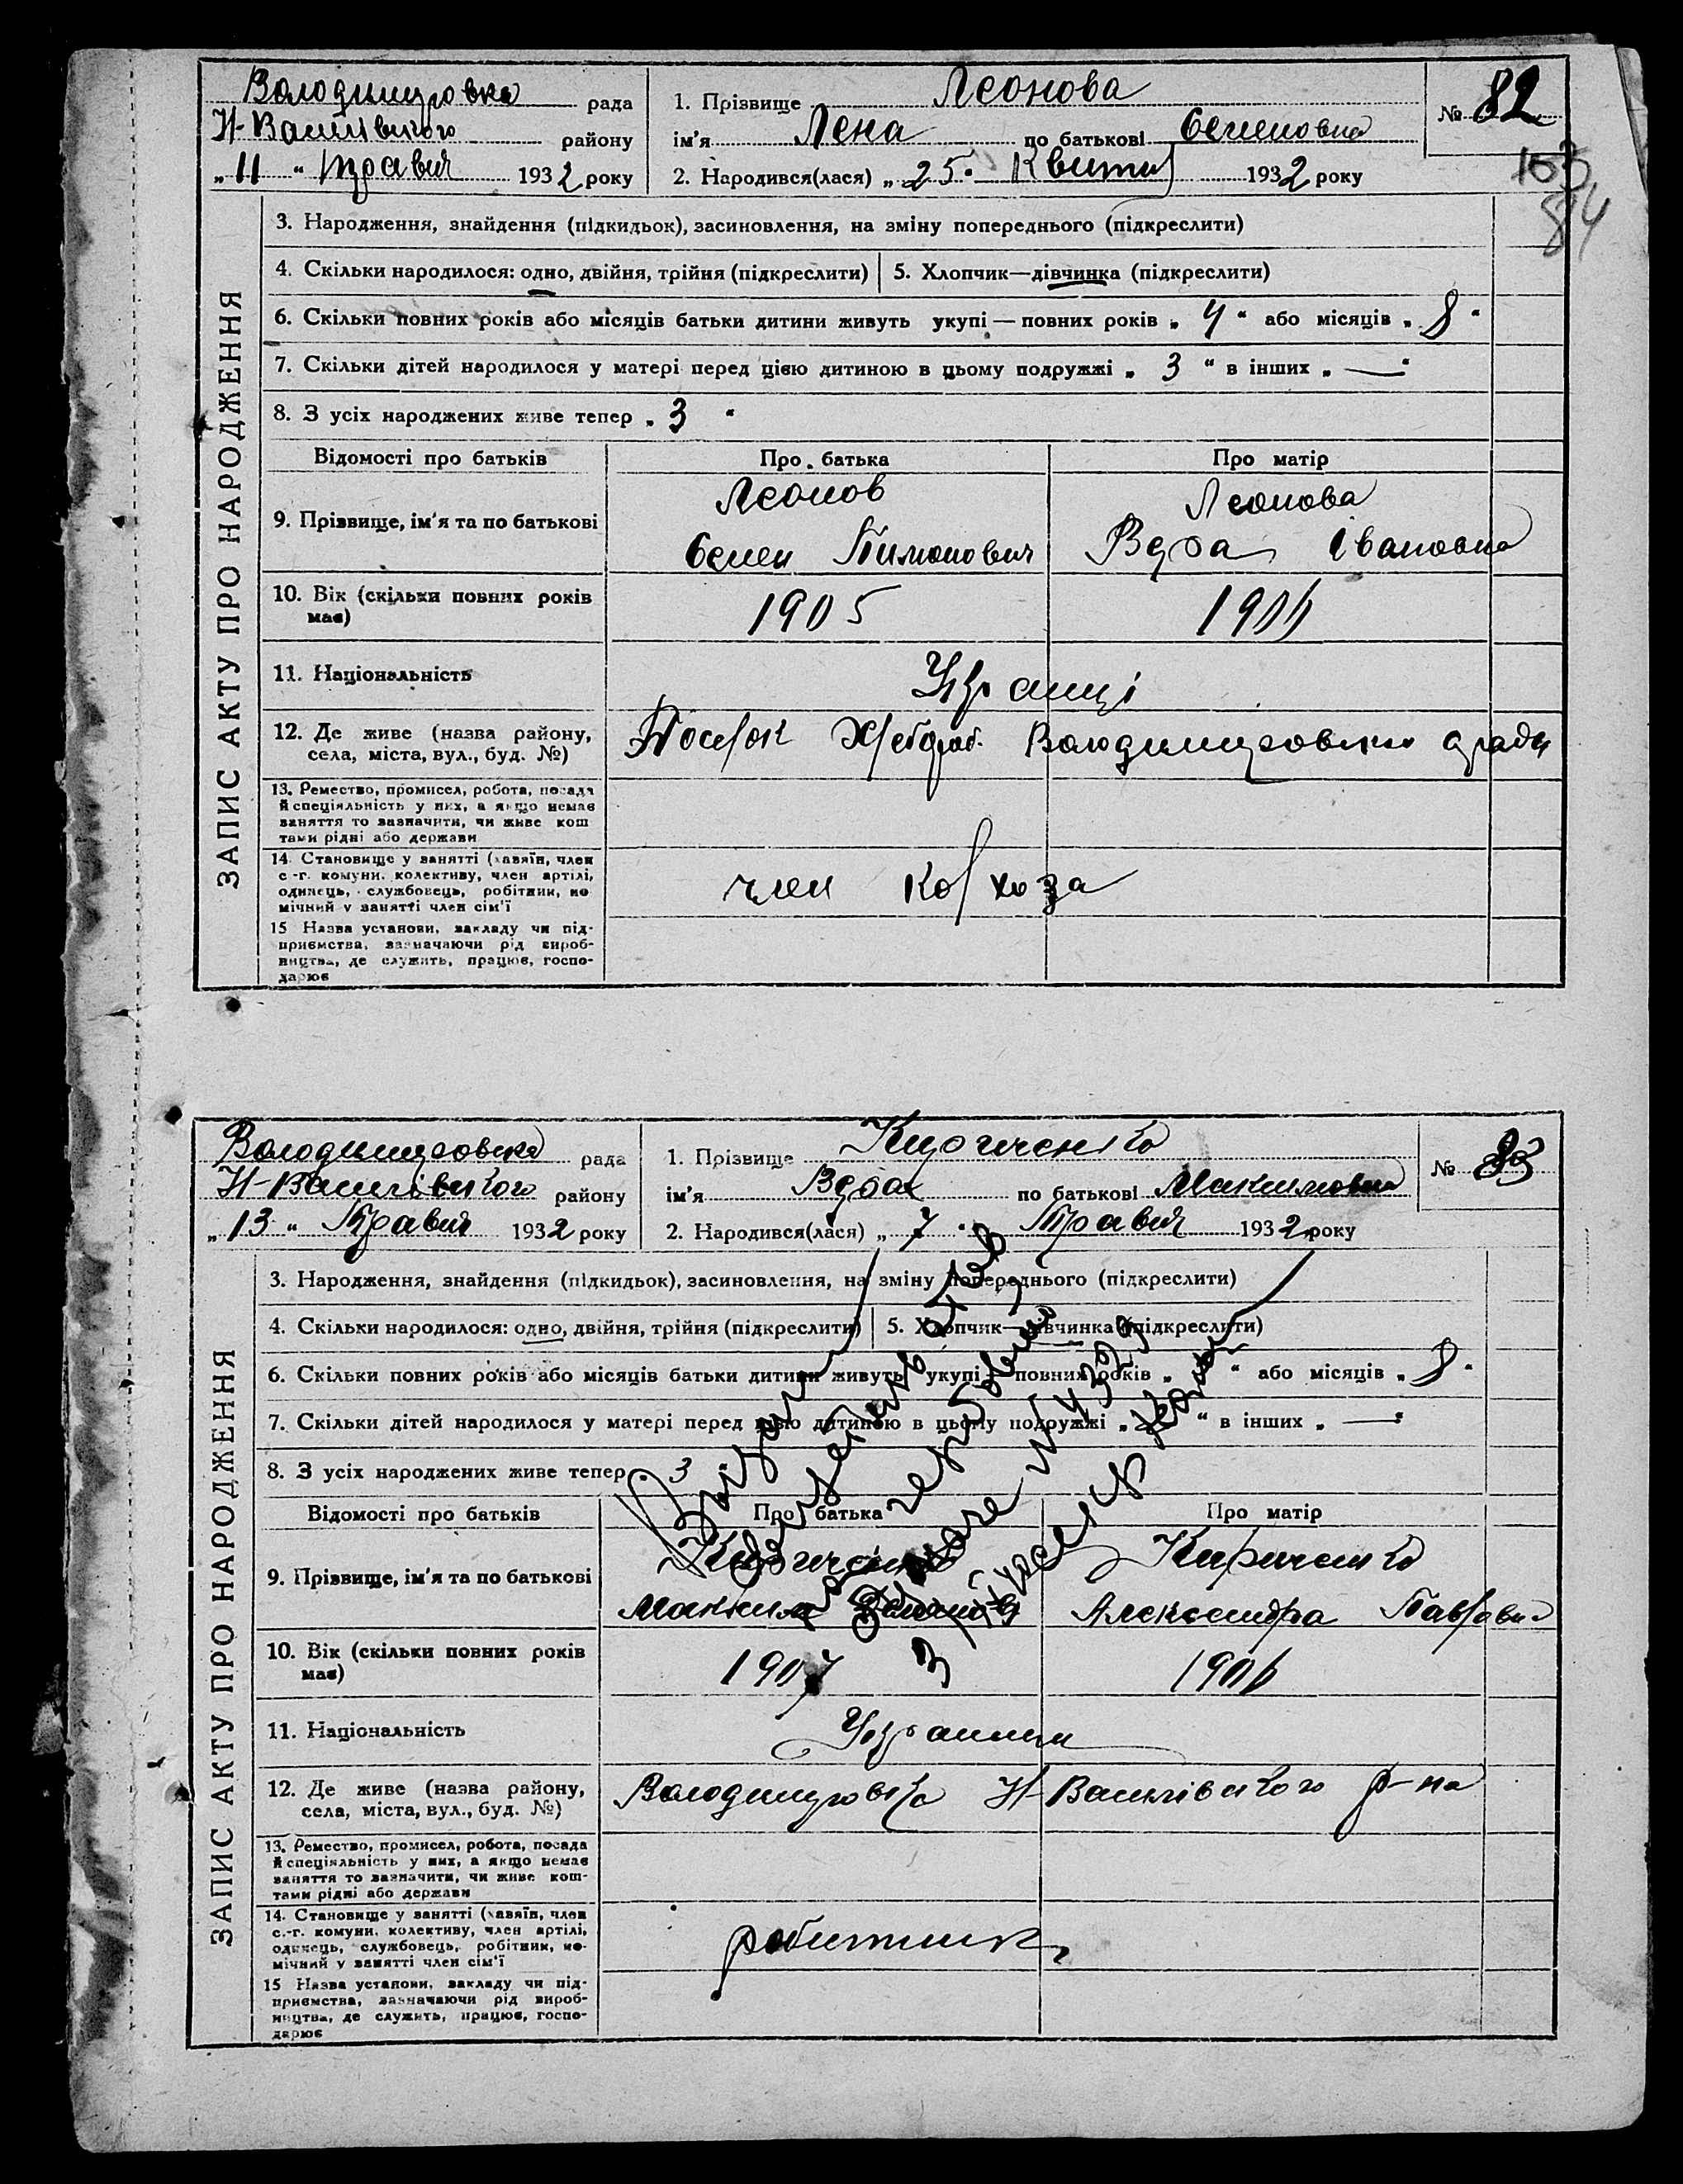 Володимировка рада
Н-Василівського району
„ 11 “ Травня 1932 року
1. Прізвище Леонова
ім'я Лена по батькові Семеновна
2. Народився(лася) „ 25 “ Квітня 1932 року
№ 82
103
84
ЗАПИС АКТУ ПРО НАРОДЖЕННЯ
3. Народження, знайдення (підкидьок), засиновлення, на зміну попереднього (підкреслити)
4. Скільки народилося: одно, двійня, трійня (підкреслити) 5. Хлопчик—дівчинка (підкреслити)
6. Скільки повних років або місяців батьки дитини живуть укупі — повних років „ 4 “ або місяців „ 8 “
7. Скільки дітей народилося у матері перед цією дитиною в цьому подружжі „ 3 “ в інших „ — “
8. З усіх народжених живе тепер „ 3 “
Відомості про батьків Про батька Про матір
9. Прізвище, ім'я та по батькові
Леонов Леонова
Семен Пимонович Вера Івановна
10. Вік (скільки повних років має)
1905 190
11. Національність
Украинці
12. Де живе (назва району,
села, міста, вул., буд. №)
Посьлок Хлебороб. Володимировски ради
13. Ремество, промисел, робота, посада
й спеціяльність у них, а якщо немає
заняття то зазначити, чи живе кош
тами рідні або держави
14. Становище у занятті (хазяїн, член
с.-г. комуни, колективу, член артілі,
одинець, службовець, робітник, по
мічний у занятті член сім'ї
член колхоза
15 Назва установи, закладу чи під-
приємства, зазначаючи рід вироб-
ництва, де служить, працює, госпо-
дарює
Володимировка рада
Н-Василівського району
„ 13 “ Травня 1932 року
1. Прізвище Кириченко
ім'я Вера по батькові Максимовна
2. Народився(лася) „ 7 “ Травня 1932 року
№ 83
ЗАПИС АКТУ ПРО НАРОДЖЕННЯ
3. Народження, знайдення (підкидьок), засиновлення, на зміну попереднього (підкреслити)
4. Скільки народилося: одно, двійня, трійня (підкреслити) 5. Хлопчик—дівчинка (підкреслити)
6. Скільки повних років або місяців батьки дитини живуть укупі — повних років „ “ або місяців „ 8 “
7. Скільки дітей народилося у матері перед цією дитиною в цьому подружжі „ “ в інших „ — “
8. З усіх народжених живе тепер „ 3
Відомості про батьків Про батька Про матір
9. Прізвище, ім'я та по батькові
Кириченко Кириченко
Максим Александра Павловна
10. Вік (скільки повних років має)
1907 190
11. Національність
Украинци
12. Де живе (назва району,
села, міста, вул., буд. №)
Володимировка Н-Василівського р-на
13. Ремество, промисел, робота, посада
й спеціяльність у них, а якщо немає
заняття то зазначити, чи живе кош-
тами рідні або держави
14. Становище у занятті (хазяїн, член
с.-г. комуни, колективу, член артілі,
одинець, службовець, робітник, по-
мічний у занятті член сім'ї
робитник
15 Назва установи, закладу чи під-
приємства, зазначаючи рід вироб-
ництва, де служить, працює, госпо-
дарює